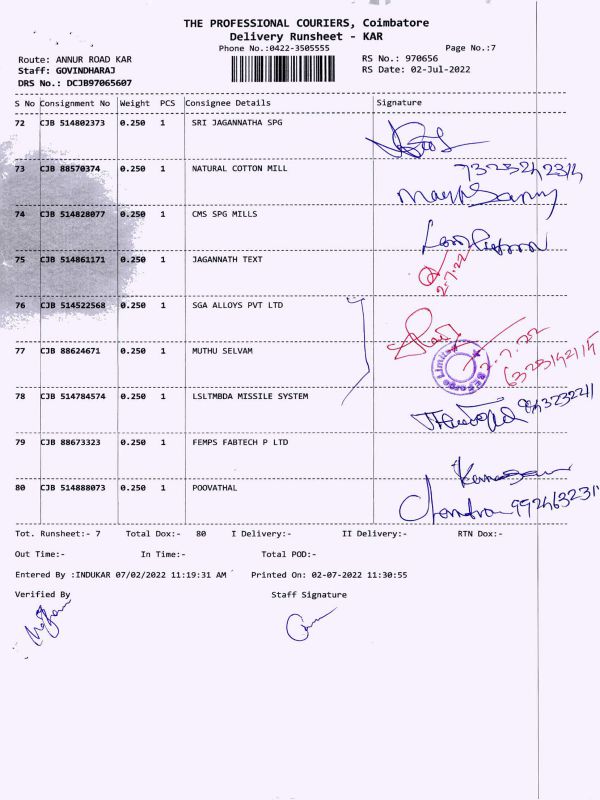 THE PROFESSIONAL COURIERS, Coimbatore
Delivery Runsheet - KAR
Phone No.:0422-3505555
Page No.:7
Route: ANNUR ROAD KAR
RS No.: 970656
Staff: GOVINDHARAJ
RS Date: 02-Jul-2022
DRS No.: DCJB97065607
S No Consignment No Weight PCS Consignee Details Signature
72 CJB 514802373 0.250 1 SRI JAGANNATHA SPG
73 CJB 88570374 0.250 1 NATURAL COTTON MILL
74 CJB 514828077 0.250 1 CMS SPG MILLS
75 CJB 514861171 0.250 1 JAGANNATH TEXT
2.7.22
76 CJB 514522568 0.250 1 SGA ALLOYS PVT LTD
2.7.22
77 CJB 88624671 0.250 1 MUTHU SELVAM
78 CJB 514784574 0.250 1 LSLTMBDA MISSILE SYSTEM
79 CJB 88673323 0.250 1 FEMPS FABTECH P LTD
80 CJB 514888073 0.250 1 POOVATHAL
Tot. Runsheet:- 7 Total Dox:- 80 I Delivery:- II Delivery:- RTN Dox:-
Out Time:- In Time:- Total POD:-
Entered By :INDUKAR 07/02/2022 11:19:31 AM Printed On: 02-07-2022 11:30:55
Verified By Staff Signature